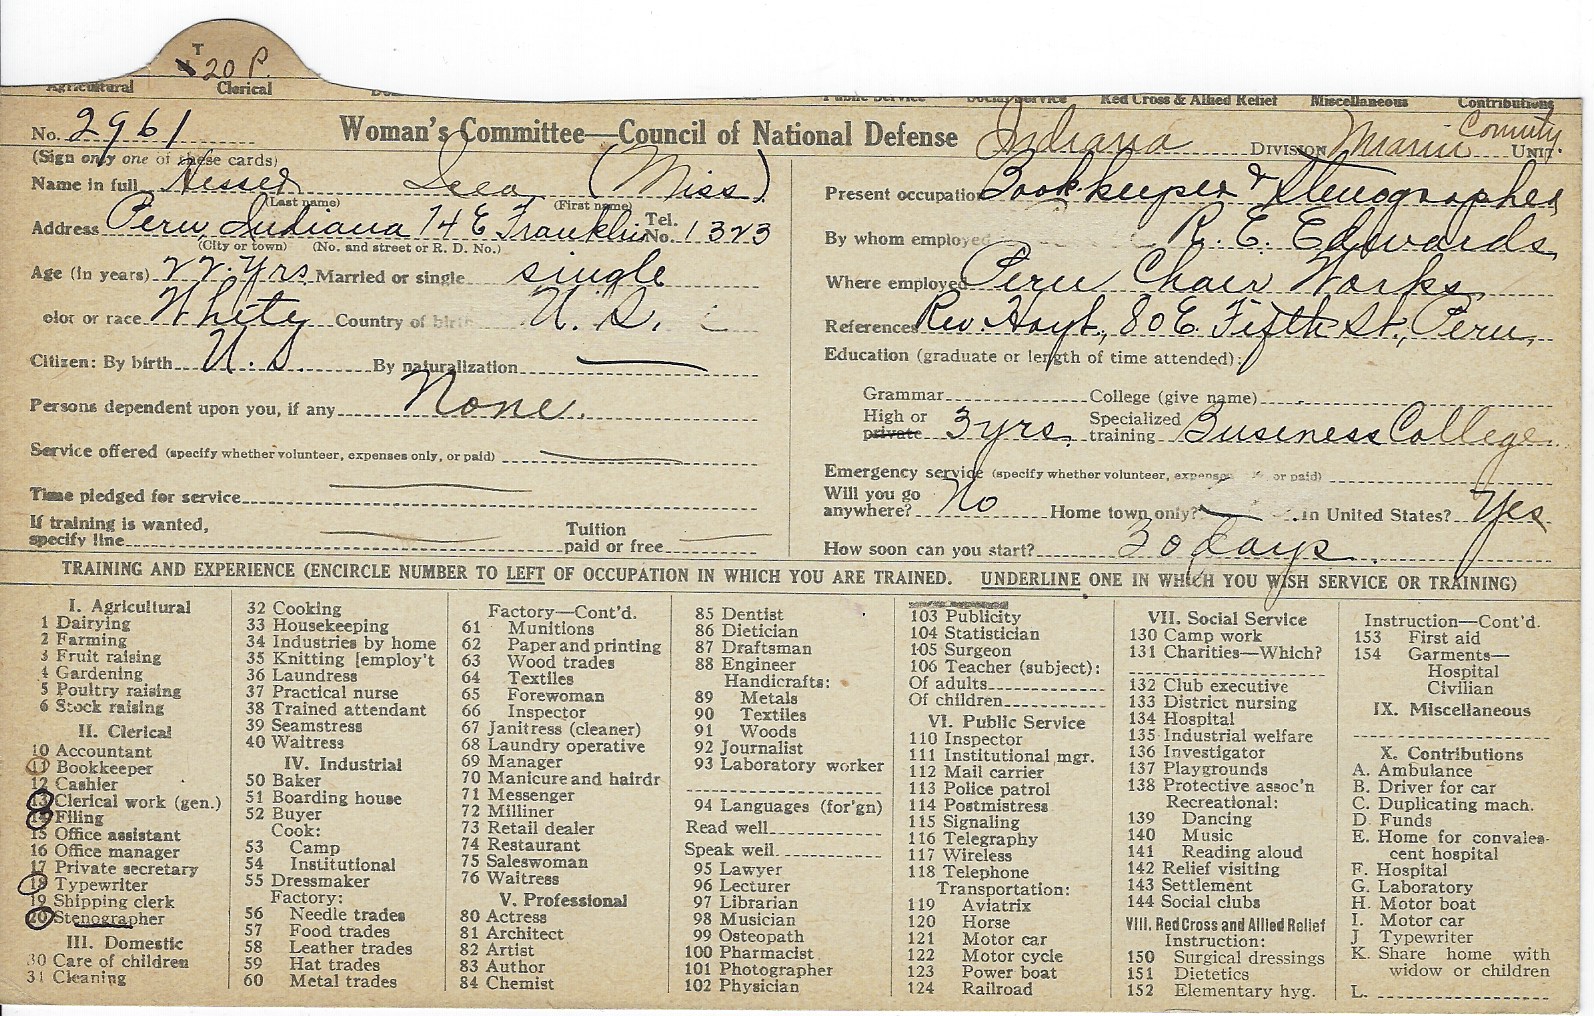 T
20 P.
Agricultural Clerical Public Service Social Service Red Cross & Allied Relief Miscellaneous Contributions
No. 2961 Woman's Committee—Council of National Defense Indiana DIVISION Miami County. UNIT.
(Sign only one of these cards)
Name in full (Miss)
(Last name) (First name)
Address Peru, Indiana 74 E Franklin Tel. No. 1323
(City or town) (No. and street or R. D. No.)
Age (in years) 22 yrs. Married or single single
olor or race Whity Country of birth U. S.
Citizen: By birth U. S. By naturalization
Persons dependent upon you, if any None.
Service offered (specify whether volunteer, expenses only, or paid)
Time pledged for service
If training is wanted, specify line Tuition paid or free
Present occupation Bookkeeper & Stenographer
By whom employed R. E. Edwards,
Where employed Peru Chair Works,
References Rev. Hoyt, 80 E. Fifth St., Peru,
Education (graduate or length of time attended):
Grammar College (give name)
High or private 3 yrs. Specialized training Business College.
Emergency service (specify whether volunteer, expenses or paid)
Will you go anywhere? No Home town only? In United States? Yes
How soon can you start? 30 days.
TRAINING AND EXPERIENCE (ENCIRCLE NUMBER TO LEFT OF OCCUPATION IN WHICH YOU ARE TRAINED. UNDERLINE ONE IN WHICH YOU WISH SERVICE OR TRAINING)
I. Agricultural
1 Dairying
2 Farming
3 Fruit raising
4 Gardening
5 Poultry raising
6 Stock raising
II. Clerical
10 Accountant
11 Bookkeeper
12 Cashier
13 Clerical work (gen.)
14 Filing
15 Office assistant
16 Office manager
17 Private secretary
18 Typewriter
19 Shipping clerk
20 Stenographer
III. Domestic
30 Care of children
31 Cleaning
32 Cooking
33 Housekeeping
34 Industries by home
35 Knitting [employ't
36 Laundress
37 Practical nurse
38 Trained attendant
39 Seamstress
40 Waitress
IV. Industrial
50 Baker
51 Boarding house
52 Buyer
Cook:
53 Camp
54 Institutional
55 Dressmaker
Factory:
56 Needle trades
57 Food trades
58 Leather trades
59 Hat trades
60 Metal trades
Factory—Cont'd.
61 Munitions
62 Paper and printing
63 Wood trades
64 Textiles
65 Forewoman
66 Inspector
67 Janitress (cleaner)
68 Laundry operative
69 Manager
70 Manicure and hairdr
71 Messenger
72 Milliner
73 Retail dealer
74 Restaurant
75 Saleswoman
76 Waitress
V. Professional
80 Actress
81 Architect
82 Artist
83 Author
84 Chemist
85 Dentist
86 Dietician
87 Draftsman
88 Engineer
Handicrafts:
89 Metals
90 Textiles
91 Woods
92 Journalist
93 Laboratory worker
94 Languages (for'gn)
Read well
Speak well
95 Lawyer
96 Lecturer
97 Librarian
98 Musician
99 Osteopath
100 Pharmacist
101 Photographer
102 Physician
103 Publicity
104 Statistician
105 Surgeon
106 Teacher (subject):
Of adults
Of children
VI. Public Service
110 Inspector
111 Institutional mgr.
112 Mail carrier
113 Police patrol
114 Postmistress
115 Signaling
116 Telegraphy
117 Wireless
118 Telephone
Transportation:
119 Aviatrix
120 Horse
121 Motor car
122 Motor cycle
123 Power boat
124 Railroad
VII. Social Service
130 Camp work
131 Charities—Which?
132 Club executive
133 District nursing
134 Hospital
135 Industrial welfare
136 Investigator
137 Playgrounds
138 Protective assoc'n
Recreational:
139 Dancing
140 Music
141 Reading aloud
142 Relief visiting
143 Settlement
144 Social clubs
VIII. Red Cross and Allied Relief
Instruction:
150 Surgical dressings
151 Dietetics
152 Elementary hyg.
Instruction—Cont'd.
153 First aid
154 Garments—
Hospital
Civilian
IX. Miscellaneous
X. Contributions
A. Ambulance
B. Driver for car
C. Duplicating mach.
D. Funds
E. Home for convales-
cent hospital
F. Hospital
G. Laboratory
H. Motor boat
I. Motor car
J Typewriter
K. Share home with
widow or children
L.